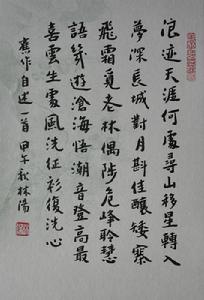 浪迹天涯何處尋山移星轉入
夢深長城對月斟佳釀矮寨
飛霜覓老林偶陟危峰聆慧
語幾遊滄海悟潮音登高最
喜雲生處風洗征衫復洗心
舊作自述一首甲午秋林陽